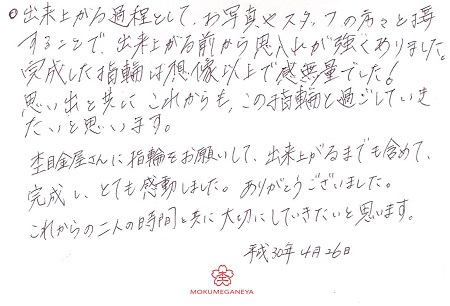 出来上がる過程として、お写真やスタッフの方々と接
することで、出来上がる前から思入れが強くありました。
完成した指輪は想像以上で感無量でした!
思い出と共に これからも、この指輪と過ごしていき
たいと思います。
杢目金屋さんに指輪をお願いして、出来上がるまでも含めて、
完成し、とても感動しました。ありがとうございました。
これからの二人の時間と共に大切にしていきたいと思います。
平成30年4月26日
MOKUMEGANEYA